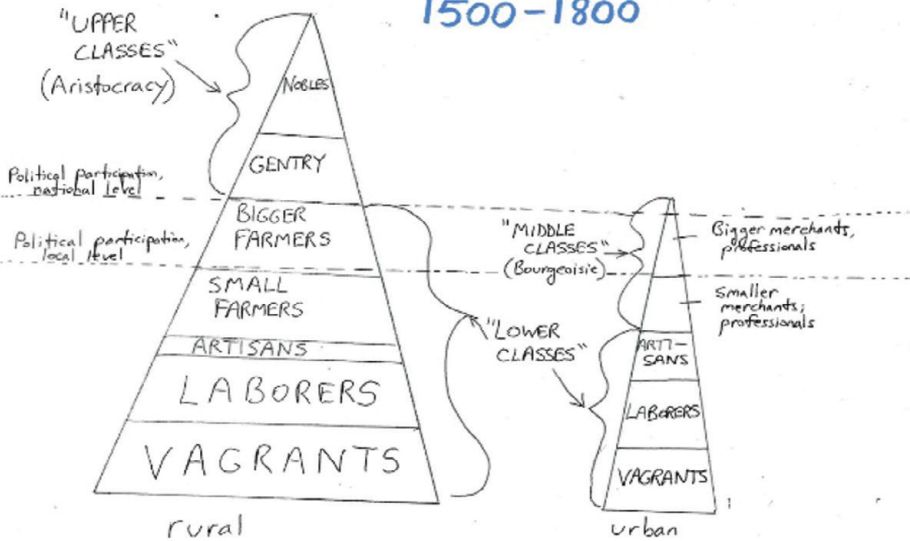 1500-1800
"UPPER
CLASSES"
(Aristocracy)
NOBLES
GENTRY
Political participation,
national level
BIGGER
FARMERS
Political participation,
local level
SMALL
FARMERS
ARTISANS
LABORERS
VAGRANTS
rural
"LOWER
CLASSES"
"MIDDLE
CLASSES"
(Bourgeoisie)
Bigger merchants,
professionals
Smaller
merchants;
professionals
ARTI-
SANS
LABORERS
VAGRANTS
urban